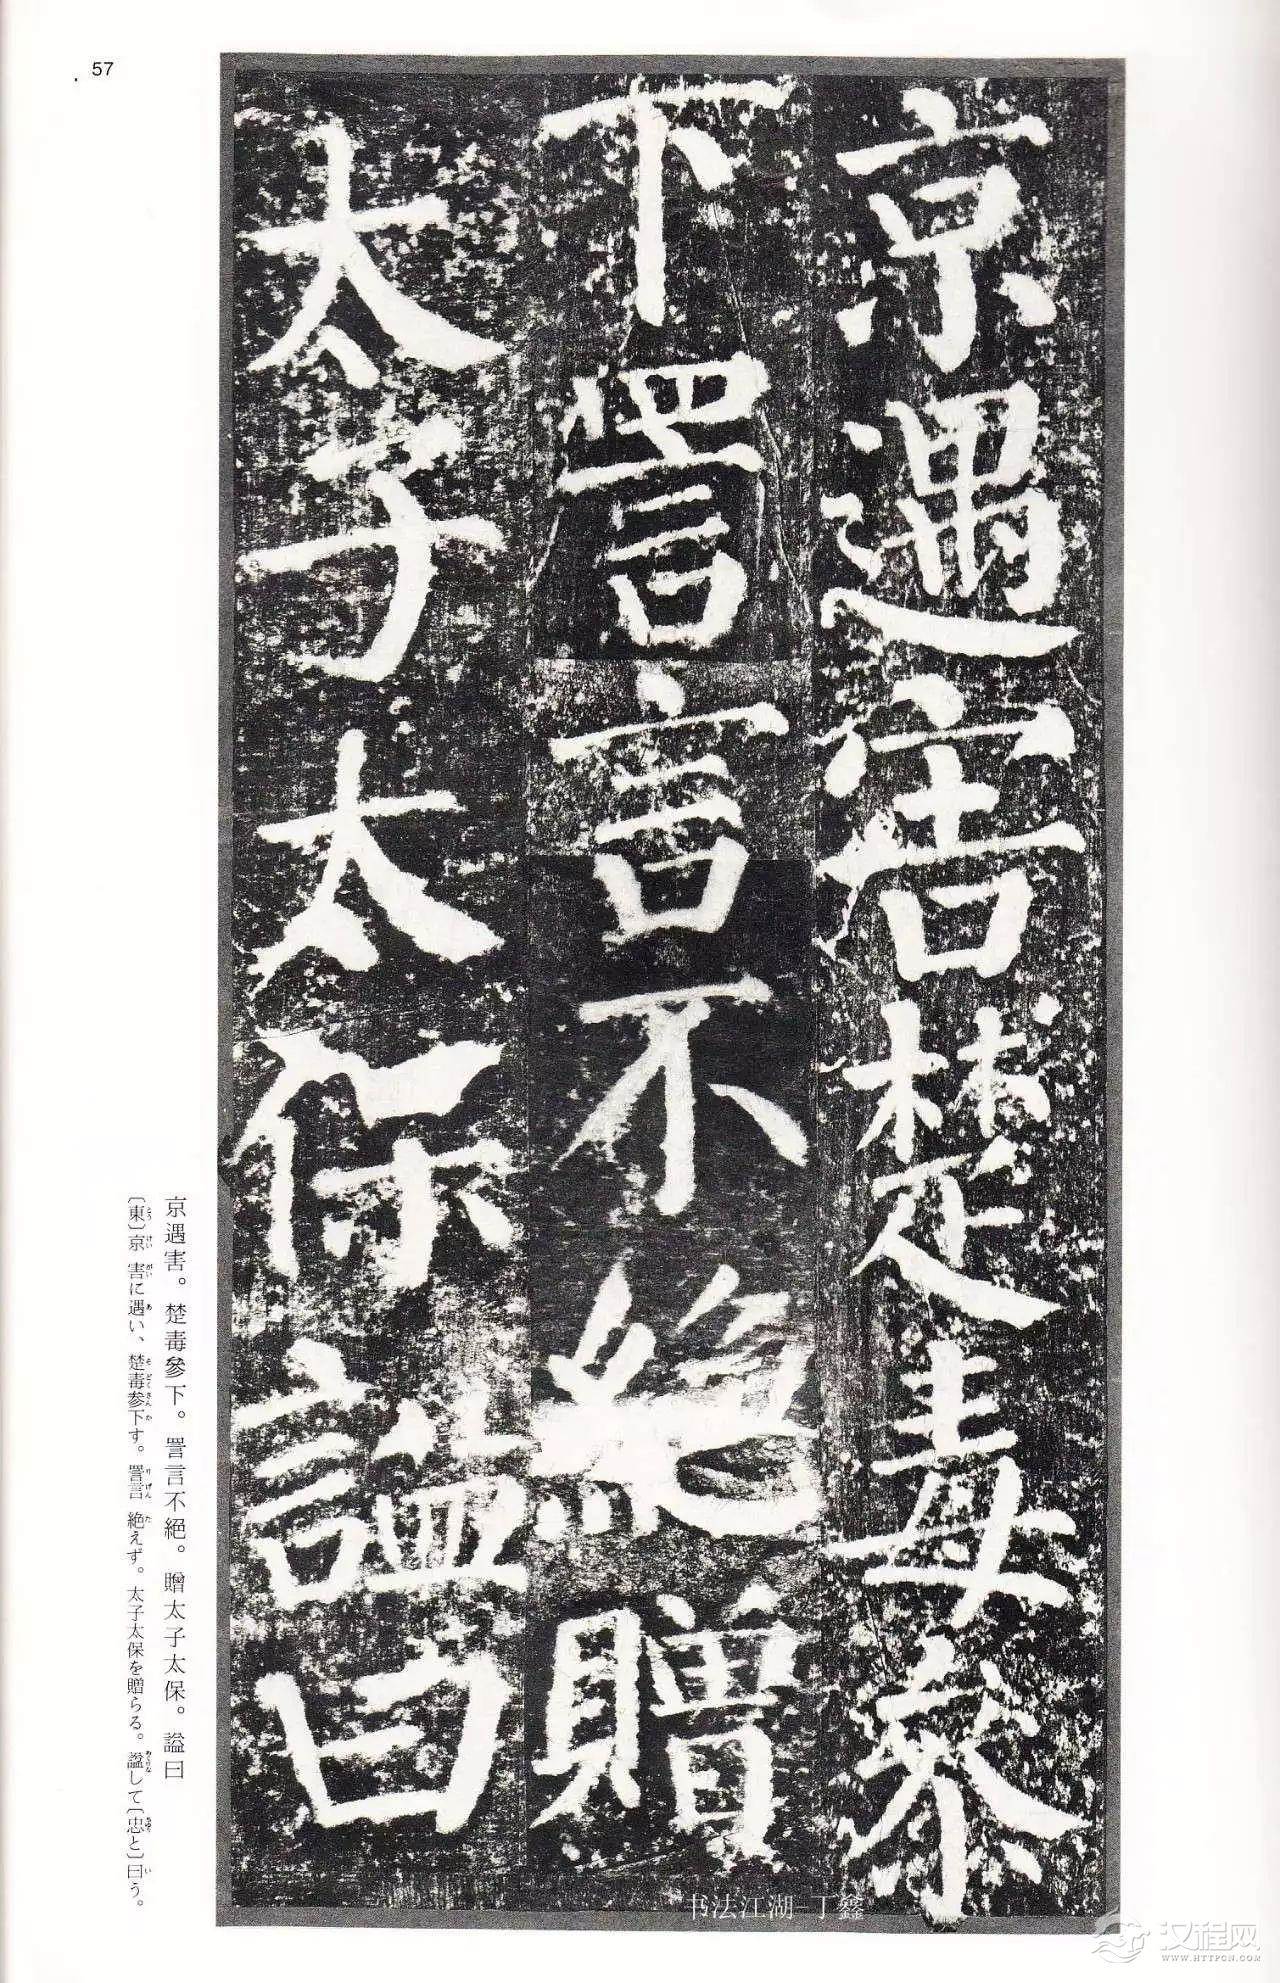 57
京遇害楚毒參
下詈言不絕贈
太子太保謚曰
京遇害。楚毒參下。詈言不絕。贈太子太保。謚曰
〔東〕京害に遇い、楚毒参下す。詈言絶えず。太子太保を贈らる。謚して〔忠と〕曰う。
书法江湖-丁鑫
汉程网
WWW.HTTPCN.COM